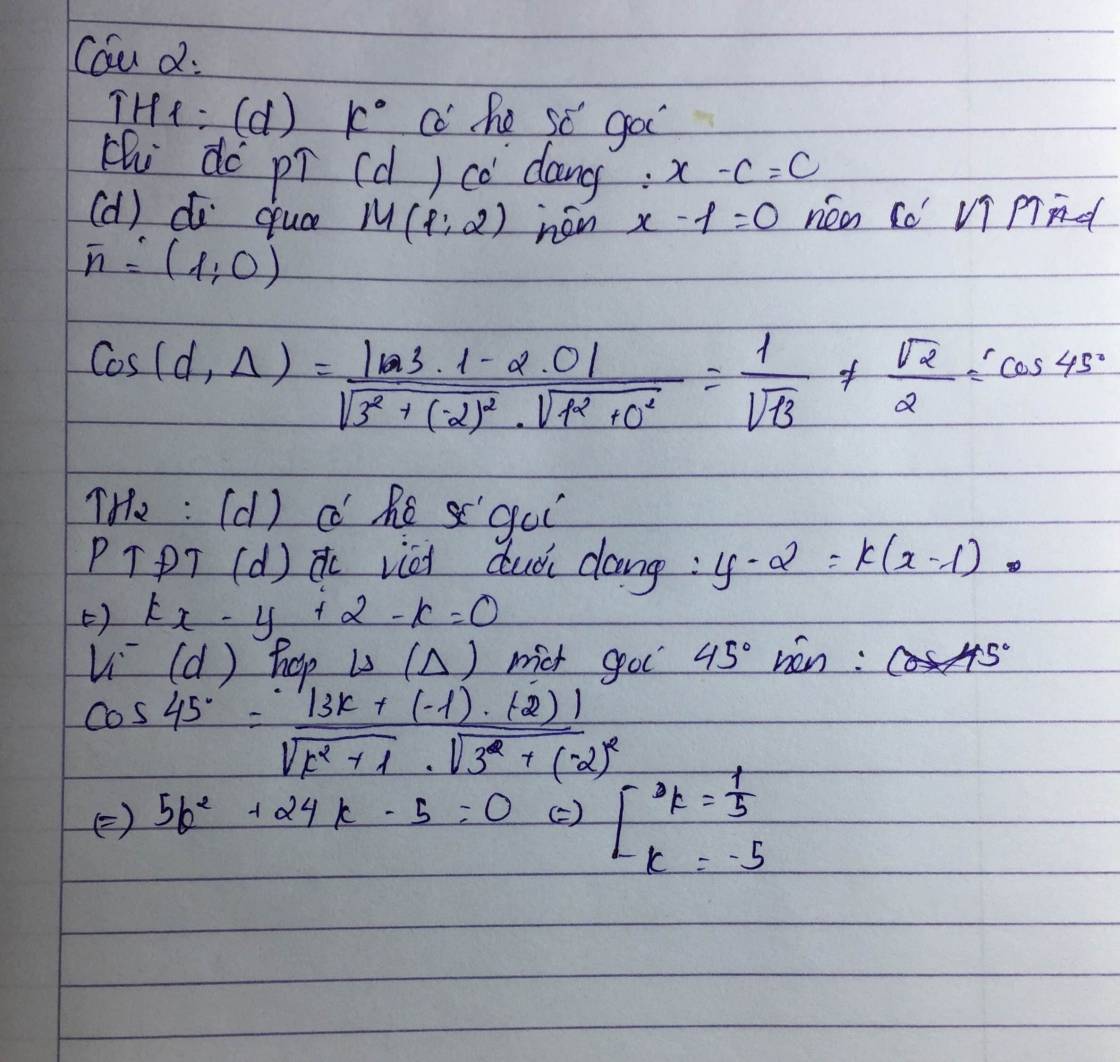 Câu 2:
TH1: (d) k° có hệ số goí
Khi đó PT (d) có dạng : x - c = 0
(d) đi qua M(1;2) nên x - 1 = 0 nên có VTPT
n = (1;0)
Cos(d, Δ) = |3.1 - 2.0| / √3² + (-2)² . √1² + 0² = 1/√13 ≠ √2/2 = cos 45°
TH2 : (d) có hệ số goí
PTĐT (d) đc viết dưới dạng : y - 2 = k(x - 1)
(=) kx - y + 2 - k = 0
Vì (d) hợp (Δ) một goí 45° nên : cos 45°
cos 45° = |3k + (-1).(-2)| / √k² + 1 . √3² + (-2)²
(=) 5k² + 24k - 5 = 0 (=) [ k = 1/5
k = -5